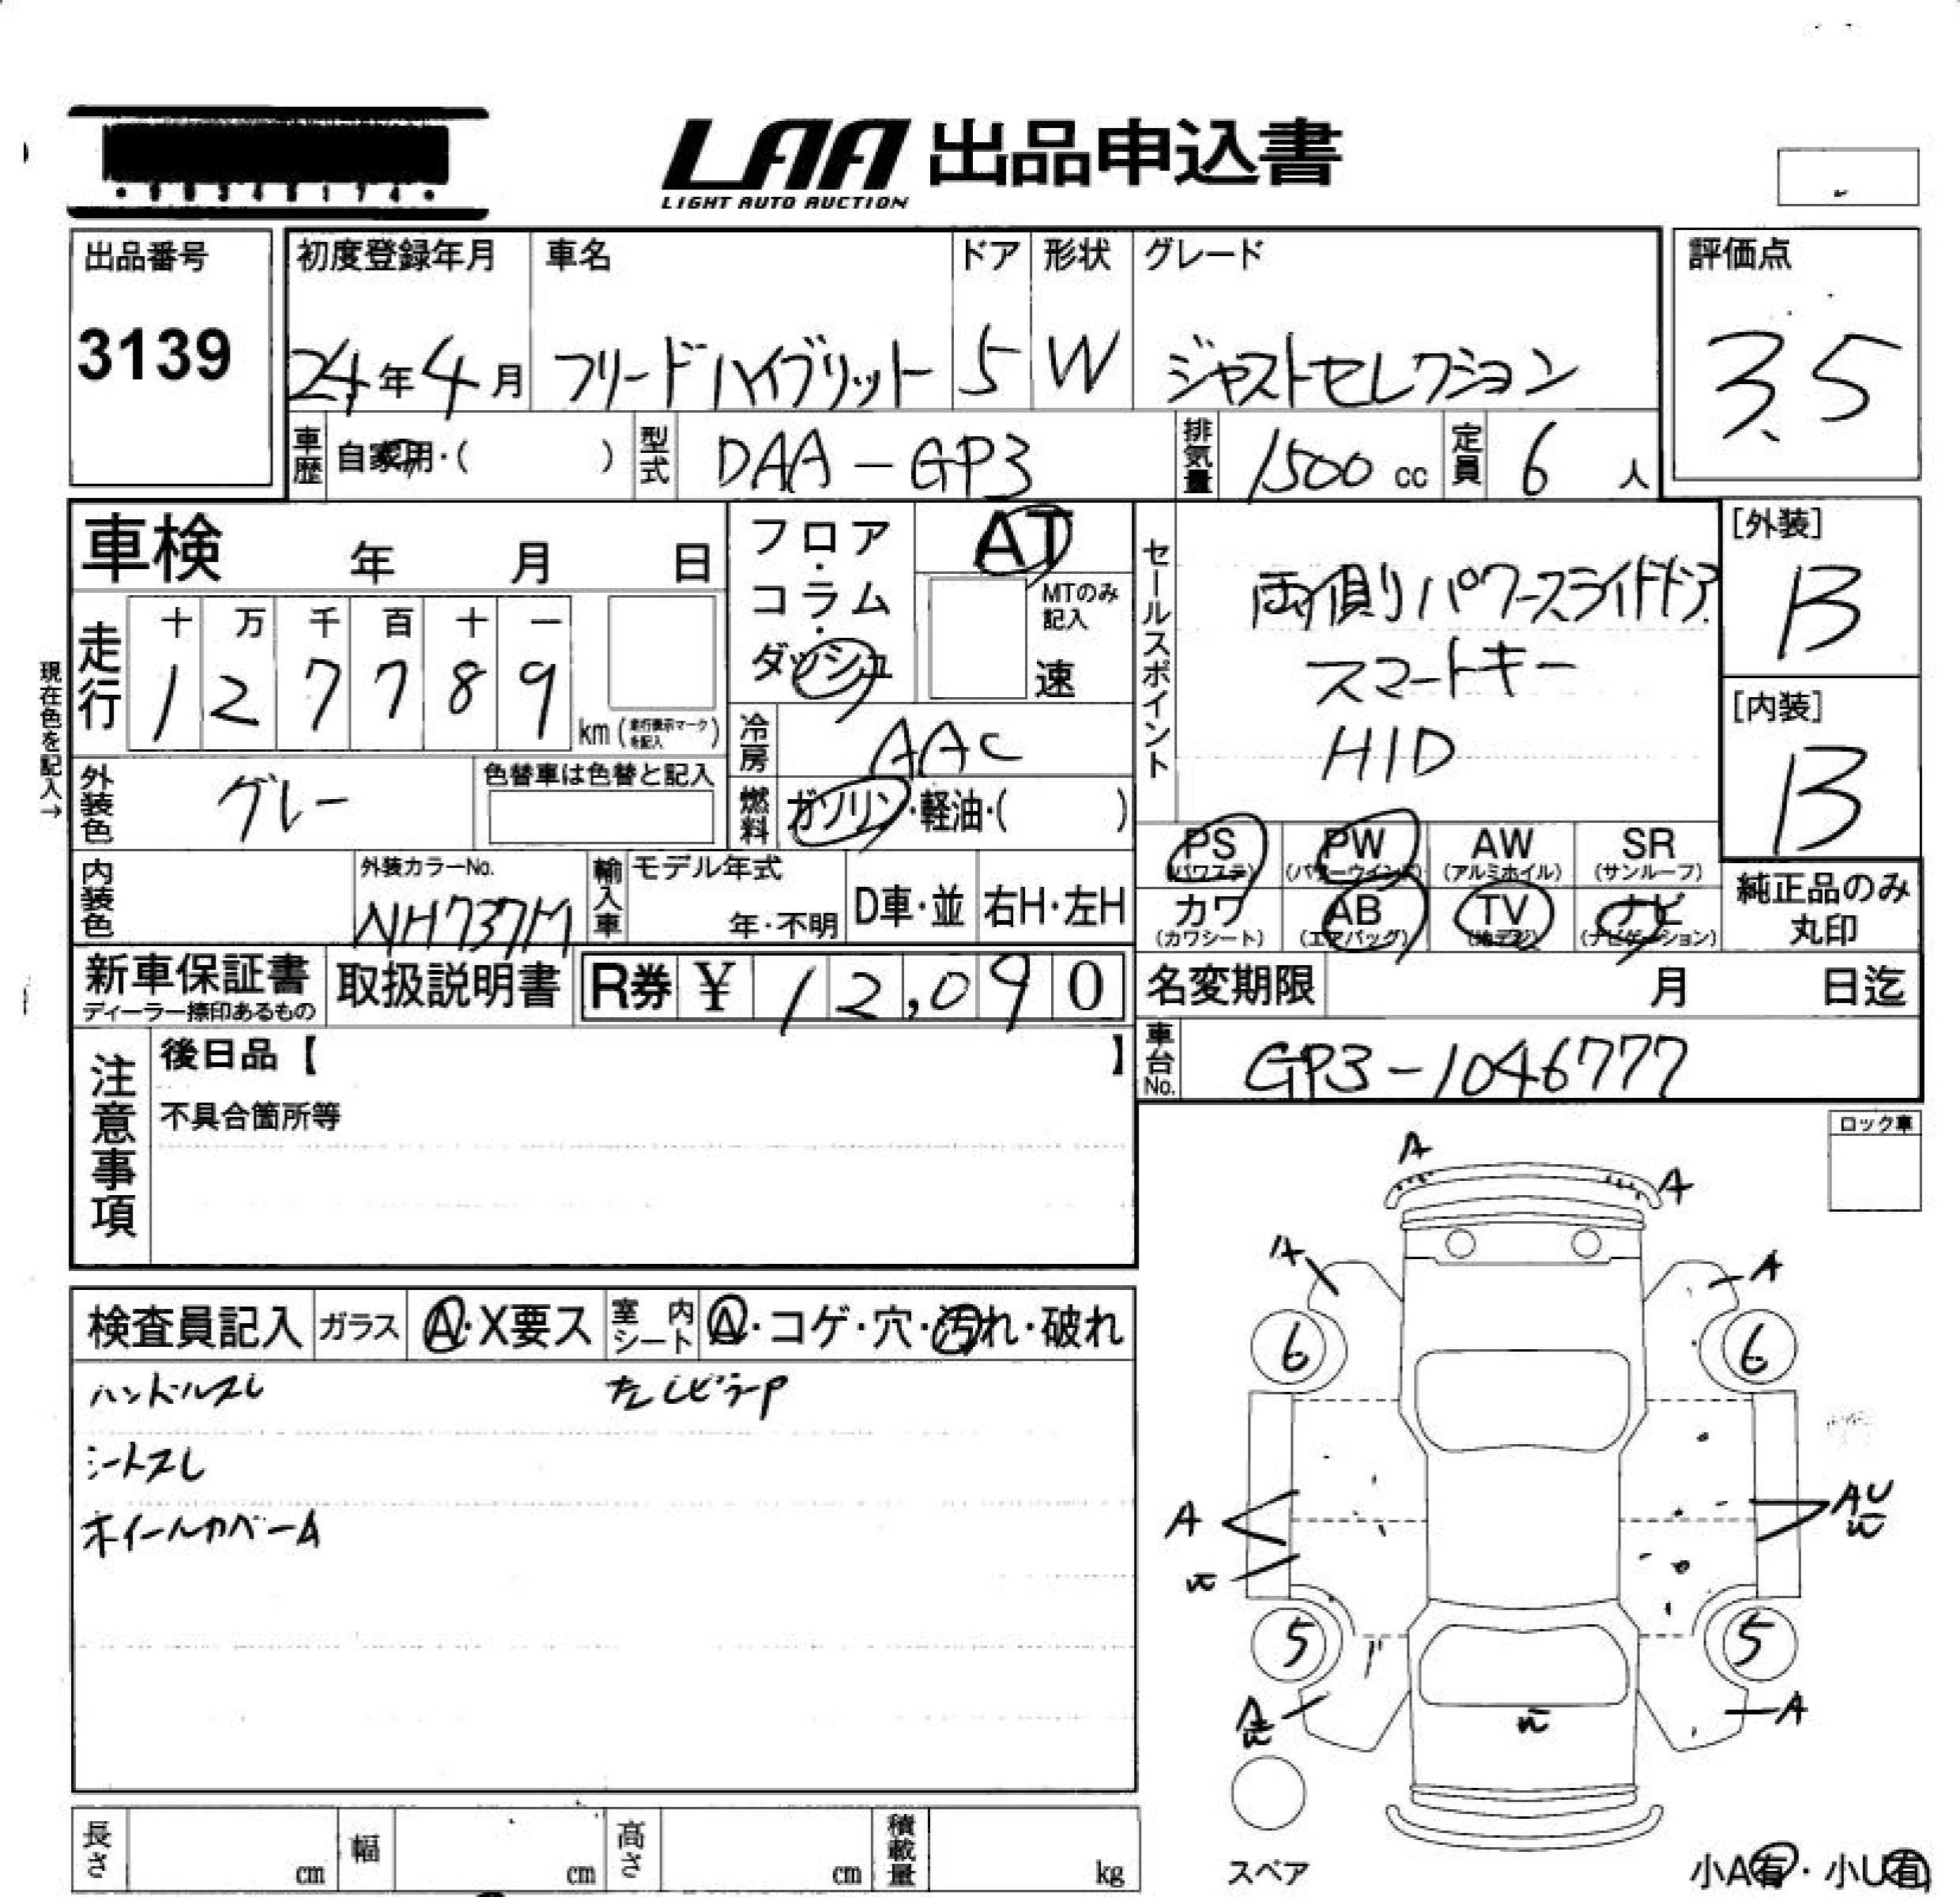 LAA 出品申込書
LIGHT AUTO AUCTION
出品番号
3139
初度登録年月 車名 ドア 形状 グレード 評価点
24年4月 フリードハイブリット 5 W ジャストセレクション 3.5
車歴 自家用・( ) 型式 DAA-GP3 排気量 1500cc 定員 6人
車検 年 月 日
フロア・コラム・ダッシュ
AT
MTのみ記入
速
現在色を記入→
走行 十 万 千 百 十 一
1 2 7 7 8 9 km (走行表示マークを記入)
冷房 AAC
外装色 グレー 色替車は色替と記入
燃料 ガソリン・軽油・( )
セールスポイント
両側パワースライドドア
スマートキー
HID
[外装]
B
[内装]
B
PS (パワステ) PW (パワーウインド) AW (アルミホイル) SR (サンルーフ)
カワ (カワシート) AB (エアバッグ) TV (地デジ) ナビ (ナビゲーション)
純正品のみ丸印
内装色 外装カラーNo. NH737M 輸入車 モデル年式 年・不明 D車・並 右H・左H
新車保証書 ディーラー捺印あるもの 取扱説明書 R券 ¥ 12,090
名変期限 月 日迄
車台No. GP3-1046777
注意事項
後日品【 】
不具合箇所等
ロック車
検査員記入 ガラス A・X要ス 室内シート A・コゲ・穴・汚れ・破れ
ハンドルスレ
シートスレ
ホイールカバーA
A
A
A
A
6 6
A
AU
5 5
A
A
スペア
小A有・小U有
長さ cm 幅 cm 高さ cm 積載量 kg